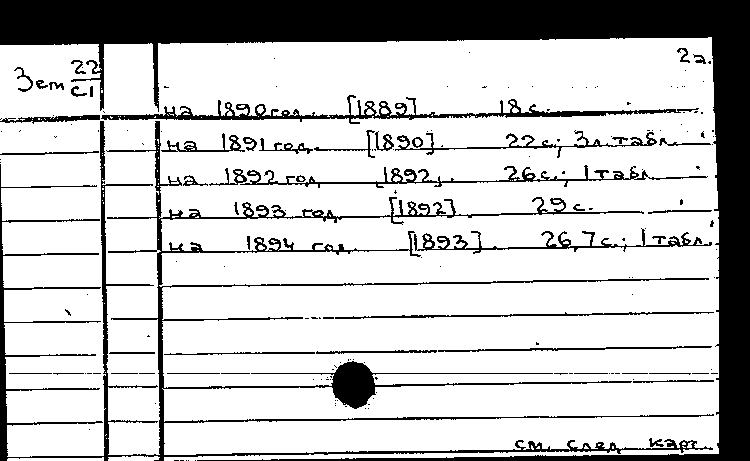 2а.
Зем 22/С1
на 1890 год. [1889]. 18 с.
на 1891 год. [1890]. 22 с.; 3 л. табл.
на 1892 год [1892]. 26 с.; 1 табл.
на 1893 год. [1892]. 29 с.
на 1894 год. [1893]. 26,7 с.; 1 табл.
см. след. карт.